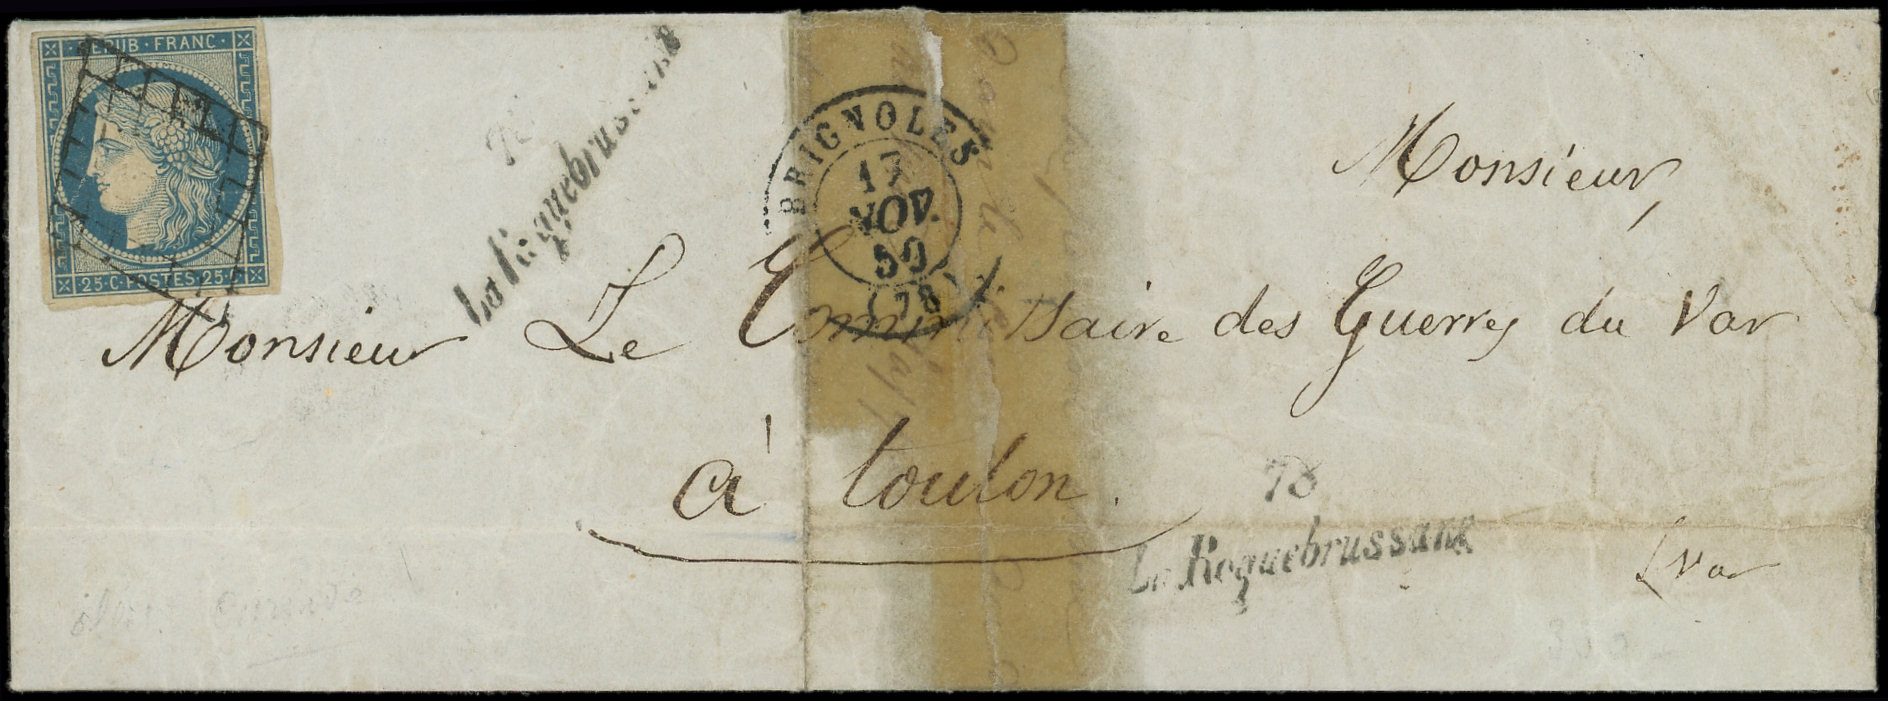 REPUB·FRANC·
25·C·POSTES·25·C
78
La Roquebrussane
BRIGNOLES
17
NOV.
50
(78)
Monsieur,
Monsieur Le Commissaire des Guerres du Var
à toulon.
78
La Roquebrussane
(Var
300